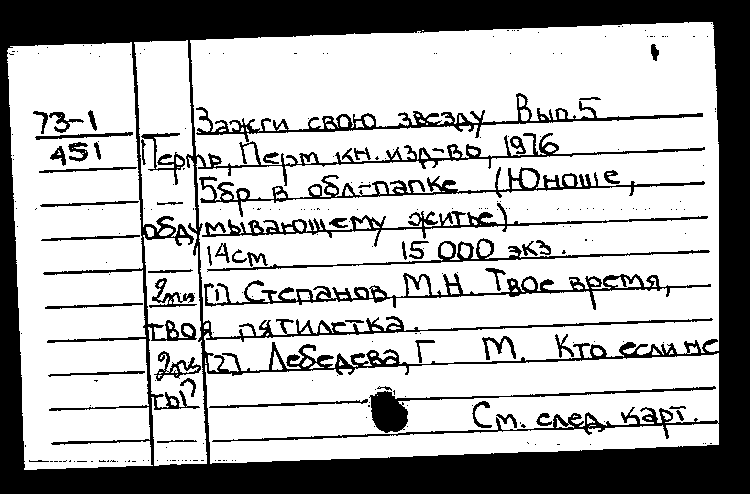 73-1 Зажги свою звезду Вып.5
451 Пермь, Перм. кн. изд-во, 1976
5бр. в обл-папке. (Юноше,
обдумывающему житье).
14см. 15 000 экз.
[1] Степанов, М.Н. Твое время,
твоя пятилетка.
[2]. Лебедева, Г. М. Кто если не
ты?
См. след. карт.